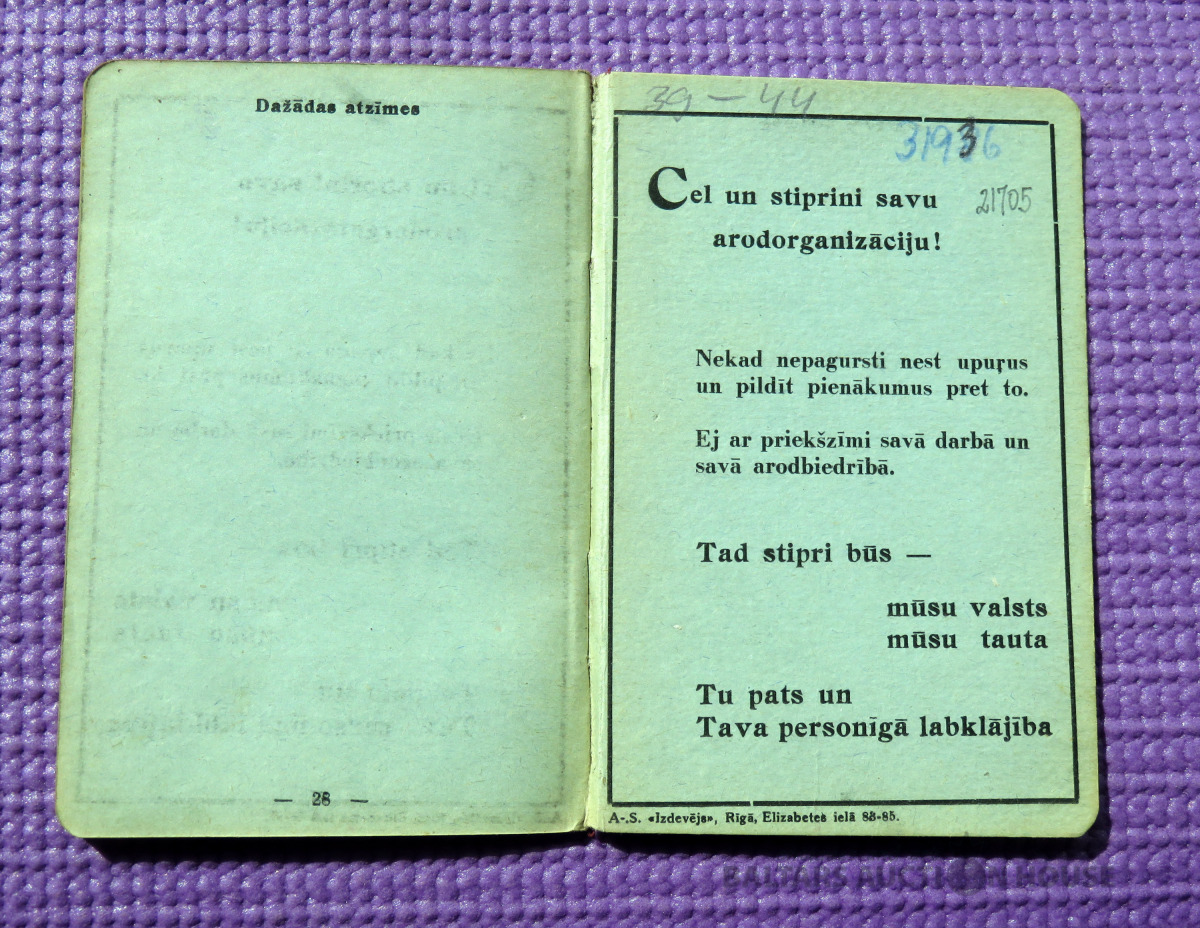 Dažādas atzīmes
— 28 —
39 – 44
31936
Cel un stiprini savu
21705
arodorganizāciju!
Nekad nepagursti nest upuŗus
un pildīt pienākumus pret to.
Ej ar priekšzīmi savā darbā un
savā arodbiedrībā.
Tad stipri būs —
mūsu valsts
mūsu tauta
Tu pats un
Tava personīgā labklājība
A-.S. «Izdevējs», Rīgā, Elizabetes ielā 83-85.
BALTARS AUCTION HOUSE